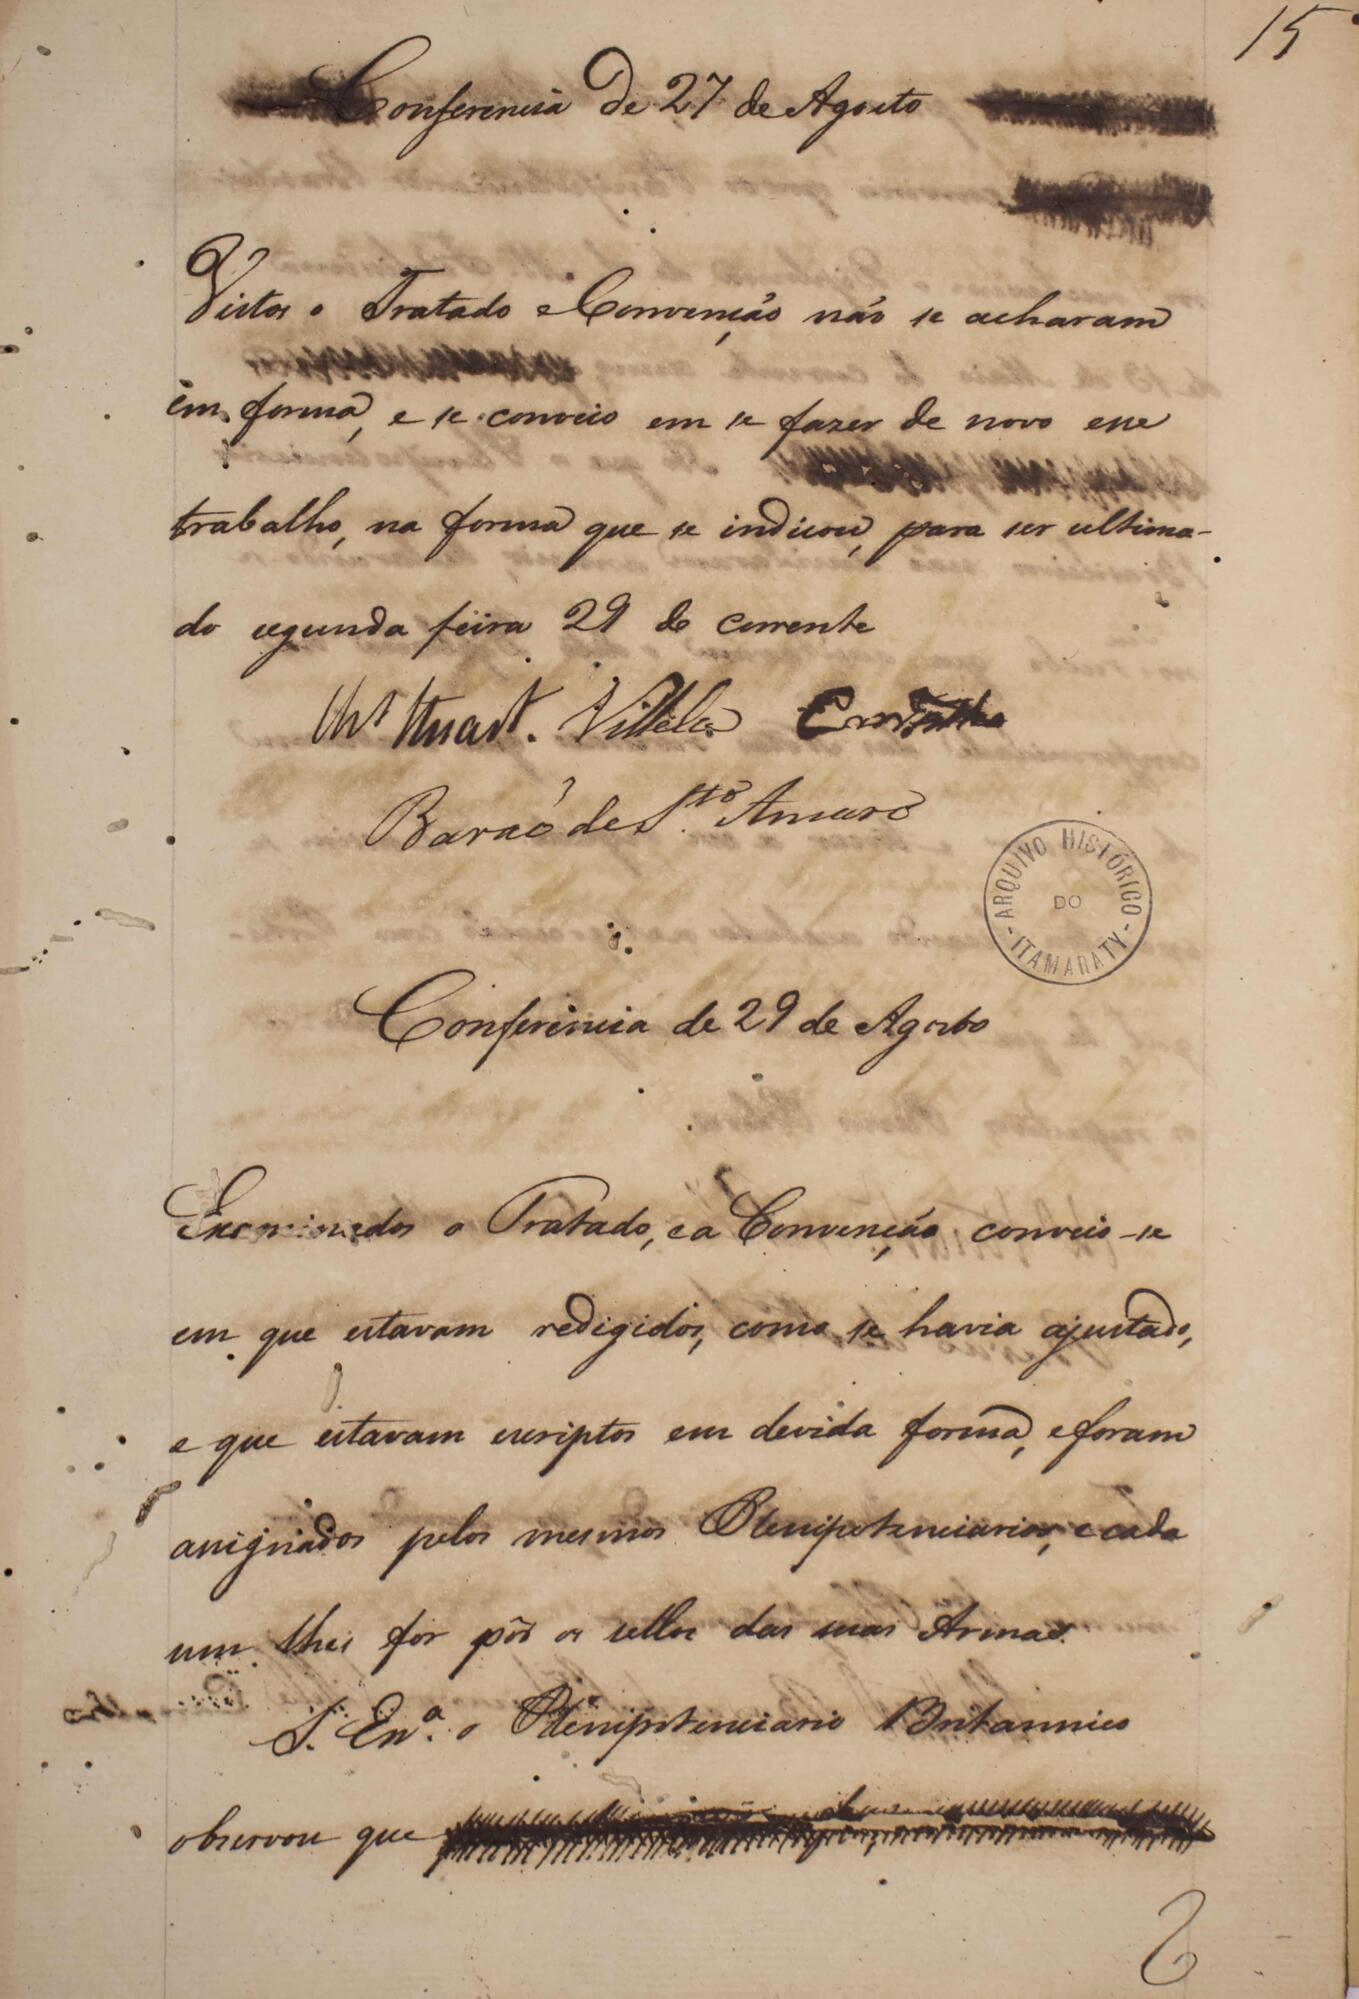 15
Conferencia De 27 de Agosto
Vistos o Tratado e Convenção não se acharam
em forma, e se conveio em se fazer de novo esse
trabalho, na forma que se indicou, para ser ultima-
do segunda feira 29 do corrente
Chs Stuart. Villela
Barão de Sto. Amaro
ARQUIVO HISTÓRICO
DO
- ITAMARATY -
Conferencia de 29 de Agosto
Examinados o Tratado, e a Convenção conveio-se
em que estavam redigidos, como se havia ajustado,
e que estavam escriptos em devida forma, e foram
assignados pelos mesmos Plenipotenciarios, e cada
um lhes fez pôr os sellos das suas Armas.
S. Exa. o Plenipotenciario Britannico
observou que